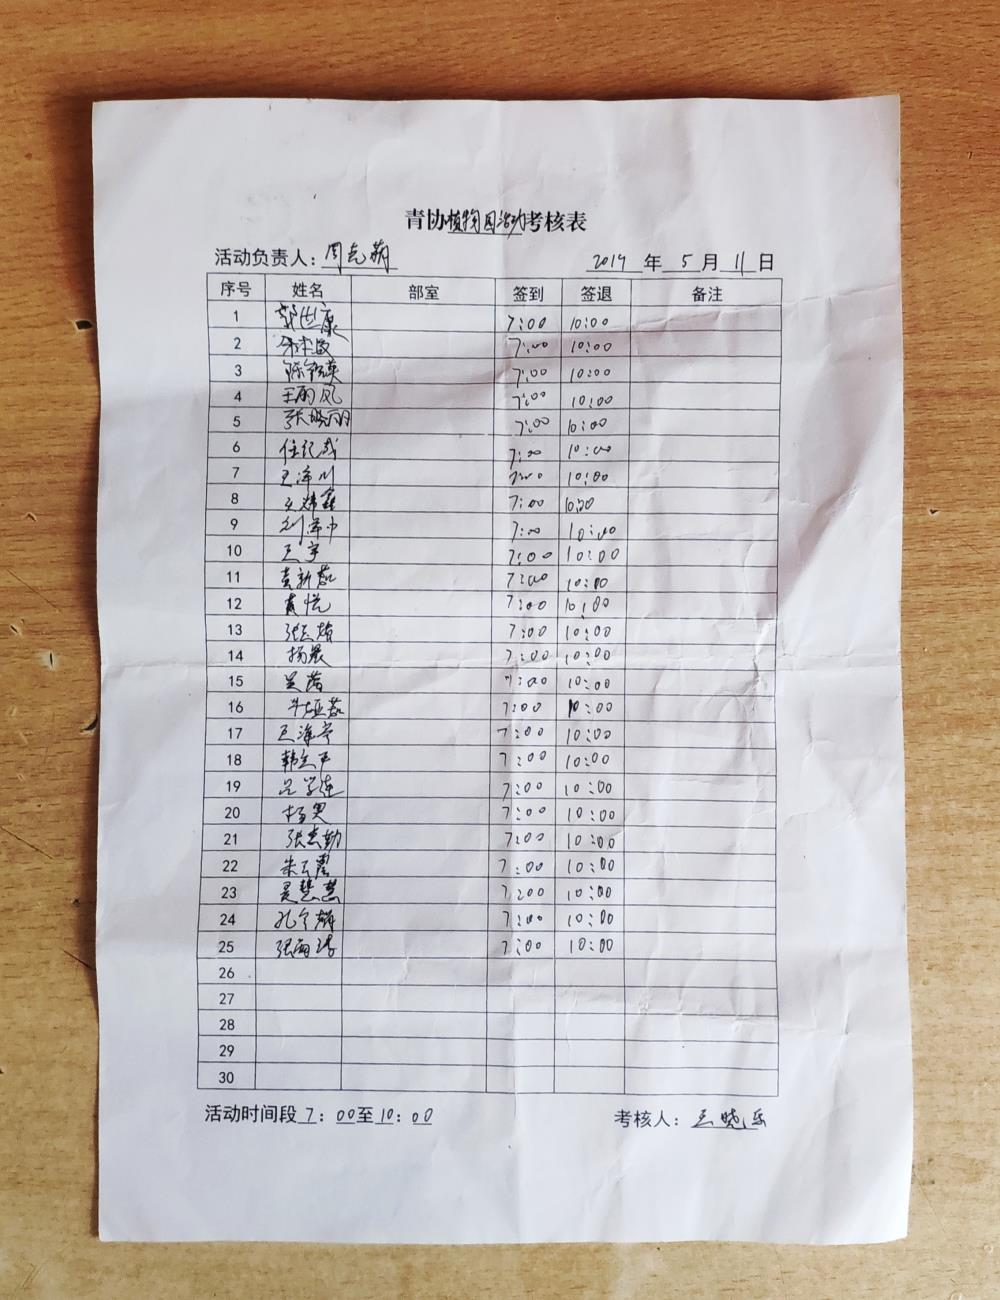 青协植物园活动考核表
活动负责人: 周志萌 2019 年 5 月 11 日
序号 姓名 部室 签到 签退 备注
1 郭世康 7:00 10:00
2 7:00 10:00
3 7:00 10:00
4 王雨风 7:00 10:00
5 张晓丽 7:00 10:00
6 任纪威 7:00 10:00
7 王泽川 7:00 10:00
8 7:00 10:00
9 7:00 10:00
10 王宇 7:00 10:00
11 7:00 10:00
12 黄悦 7:00 10:00
13 7:00 10:00
14 杨晨 7:00 10:00
15 吴蕾 7:00 10:00
16 7:00 10:00
17 王海宁 7:00 10:00
18 7:00 10:00
19 吕学莲 7:00 10:00
20 杨昊 7:00 10:00
21 张志勤 7:00 10:00
22 朱云霞 7:00 10:00
23 吴慧慧 7:00 10:00
24 孔令麟 7:00 10:00
25 7:00 10:00
26
27
28
29
30
活动时间段 7: 00至 10: 00 考核人: 王晓乐